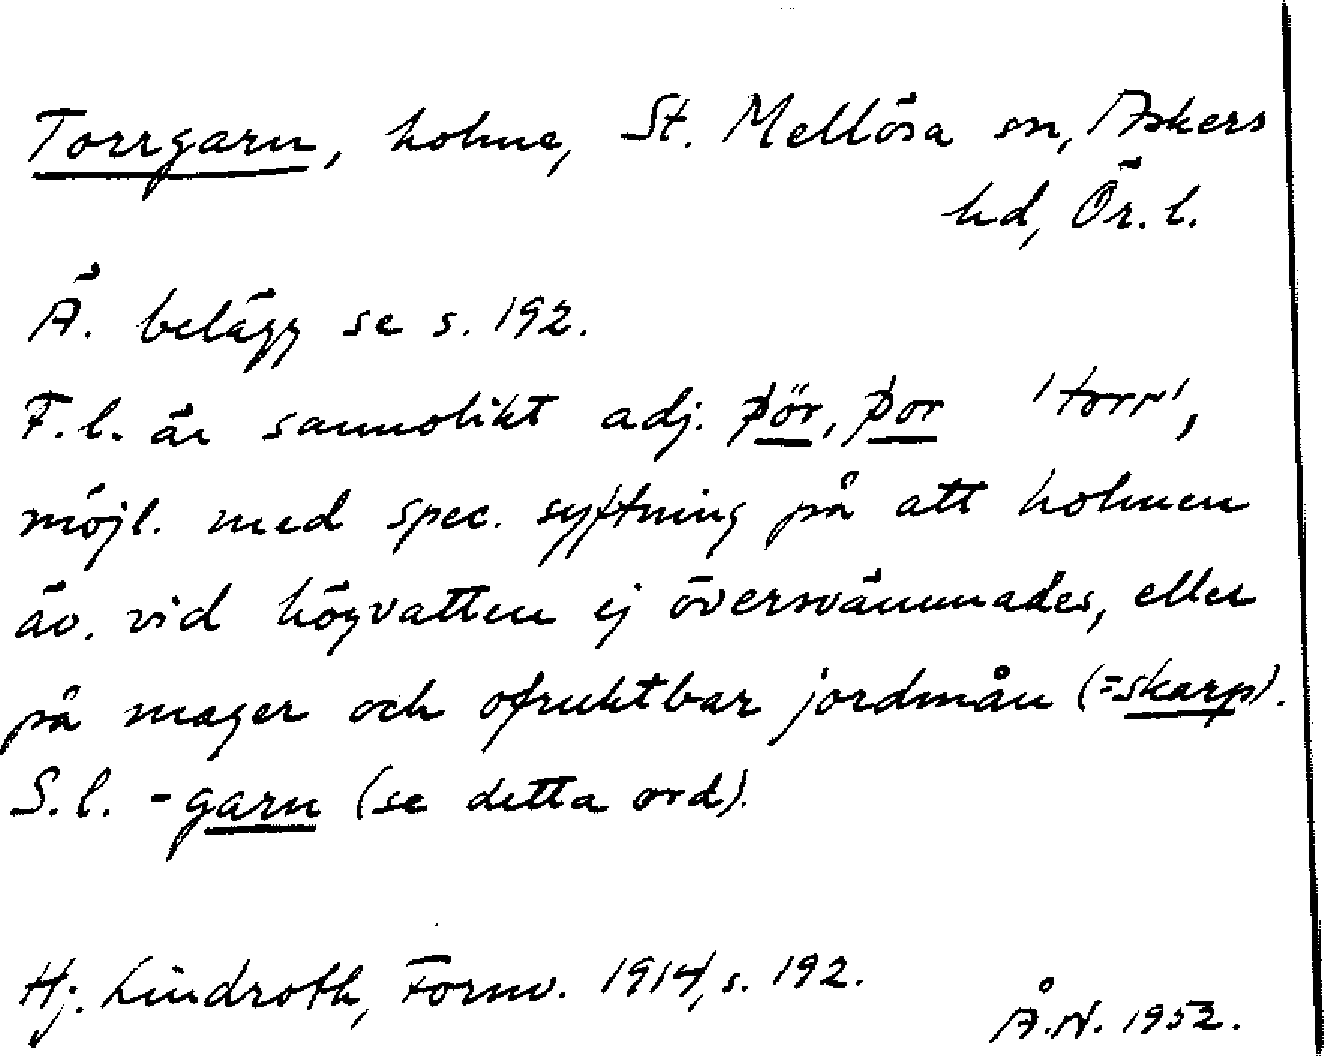 Torrgarn, holme, St. Mellösa sn, Askers
hd, Ör. l.
Ä. belägg se s. 192.
F.l. är sannolikt adj. þör, þor 'torr',
möjl. med spec. syftning på att holmen
äv. vid högvatten ej översvämmades, eller
på mager och ofruktbar jordmån (=skarp).
S.l. -garn (se detta ord).
Hj. Lindroth, Fornv. 1914, s. 192.
Å.N. 1952.